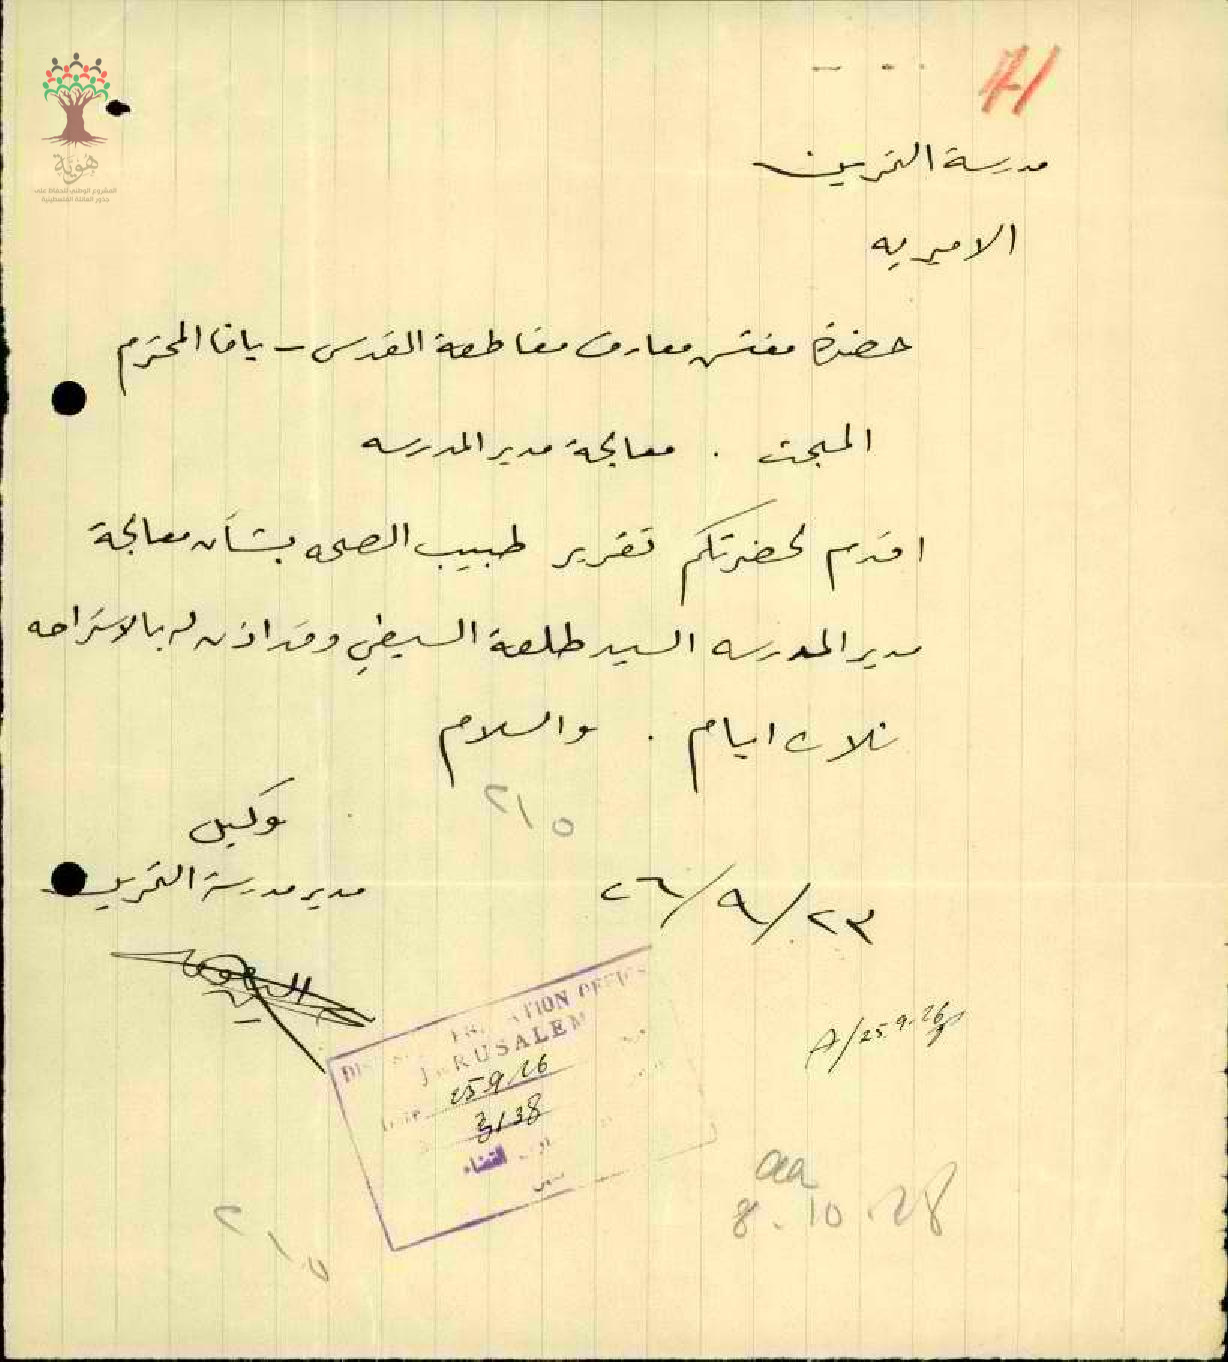 71
هوية
المشروع الوطني للحفاظ على
جذور العائلة الفلسطينية
مدرسة التمرين
الاميريه
حضرة مفتش معارف مقاطعة القدس - يافا المحترم
المبحث . معالجة مدير المدرسه
اقدم لحضرتكم تقرير طبيب الصحه بشأن معالجة
مدير المدرسه السيد طلعة السيفي وقد اذن له بالاستراحه
ثلاث ايام . والسلام
٢١٥
وكيل
مدير مدرسة التمرين
٢٣/٩/٢٦
EDUCATION OFFICE
JERUSALEM
25 9 26
3138
القضاء
A/25.9.26
aa
8.10.28
٢١٥